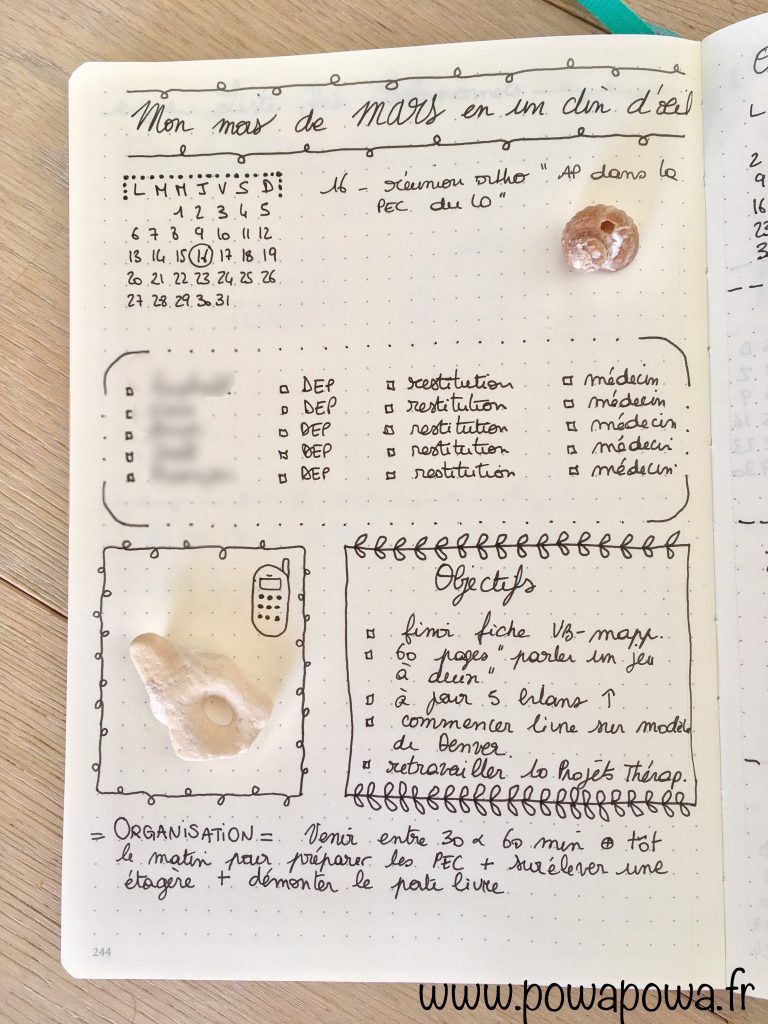 Mon mois de MARS en un clin d'œil
L M M J V S D
1 2 3 4 5
6 7 8 9 10 11 12
13 14 15 16 17 18 19
20 21 22 23 24 25 26
27 28 29 30 31
16 - réunion ortho " AP dans la
PEC du LO "
DEP restitution médecin
DEP restitution médecin
DEP restitution médecin
DEP restitution médecin
DEP restitution médecin
Objectifs
finir fiche VB-mapp.
60 pages " parler un jeu
à deux "
à jour 5 bilans ↑
commencer livre sur modèle
de Denver.
retravailler 10 Projets Thérap.
= ORGANISATION = Venir entre 30 & 60 min ⊕ tôt
le matin pour préparer les PEC + surélever une
étagère + démonter le porte livre
244
L
2
9
16
23
3
www.powapowa.fr